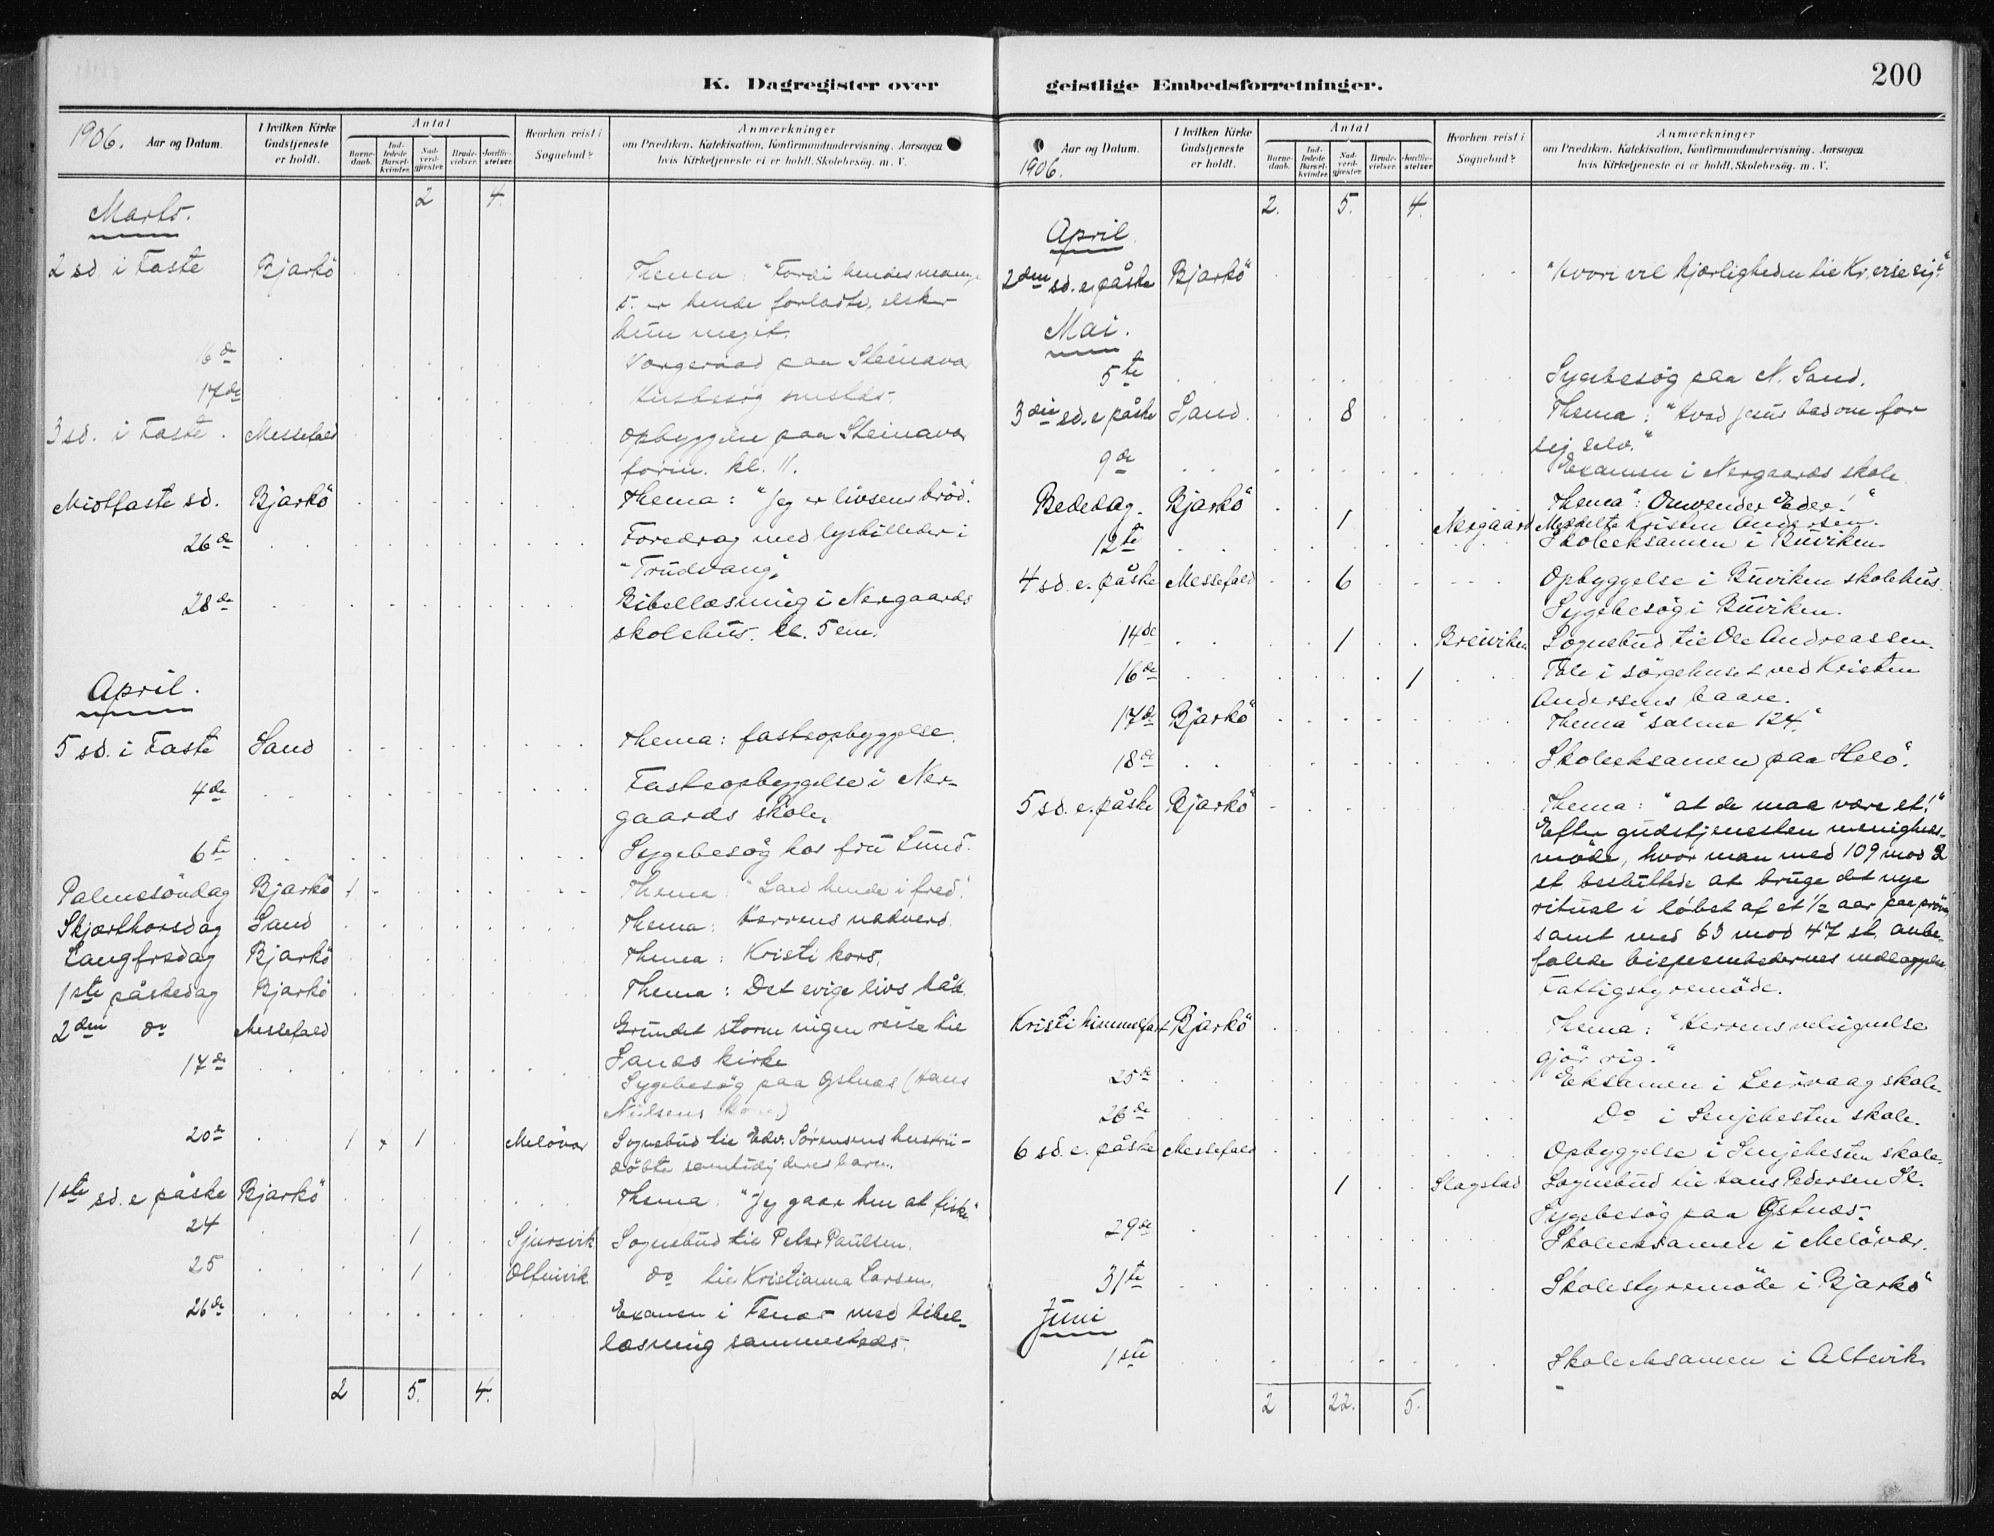 K. Dagregister over
1906. Aar og Datum.
I hvilken Kirke Gudstjeneste er holdt.
Antal
Barne-daab.
Ind-ledede Barsel-kvinder.
Nad-verd-gjæster.
Brude-vielser.
Jordfæ-stelser.
Hvorhen reist i Sognebud?
Anmærkninger
om Prædiken, Katekisation, Konfirmandundervisning, Aarsagen
hvis Kirketjeneste ei er holdt. Skolebesøg. m. V.
2 4.
Marts.
2 sd. i Faste Bjarkö Thema: "Fordi hendes mange
s. er hende forladte, elsker
hun meget.
16de Vergeraad paa Steinavær
17de Husbesög smsteds.
3 sd. i Faste. Messefald Opbyggelse paa Steinavær
form. kl. 11.
Midtfaste sd. Bjarkö Thema: "Jeg er livsens bröd".
26de Foredrag med lysbilleder i
"Trudvang".
28de Bibellæsning i Nergaards
skolehus. kl. 5 em.
April.
5 sd. i Faste Sand Thema: fasteopbyggelse.
4de Fasteopbyggelse i Ner-
gaards skole.
6te Sygebesög hos fru Lund.
Palmesöndag Bjarkö 1 Thema: "Lad hende i fred".
Skjærthorsdag Sand Thema: Herrens nadverd.
Langfredag Bjarkö Thema: Kristi kors.
1ste påskedag Bjarkö Thema: Det evige livs håb.
2den do Messefald Grundet storm ingen reise til
Sands kirke
17de Sygebesög paa Östnæs (Hans
Nielsens kone)
20de 1 x 1 Melövær Sognebud til Edv. Sörensens hustru -
döbte samtidig deres barn.
1ste sd. e påske Bjarkö Thema: "Jeg gaar hen at fiske"
24 1 Sjursvik Sognebud til Peter Paulsen.
25 1 Altevik do til Kristianna Larsen.
26de Examen i Fenes med bibel-
læsning sammesteds.
2 5. 4.
geistlige Embedsforretninger.
200
1906. Aar og Datum.
I hvilken Kirke Gudstjeneste er holdt.
Antal
Barne-daab.
Ind-ledede Barsel-kvinder.
Nad-verd-gjæster.
Brude-vielser.
Jordfæ-stelser.
Hvorhen reist i Sognebud?
Anmærkninger
om Prædiken, Katekisation, Konfirmandundervisning, Aarsagen
hvis Kirketjeneste ei er holdt. Skolebesøg. m. V.
2. 5. 4.
April.
2den sd. e. påske Bjarkö "Hvori vil kjærligheden til Kr. vise sig?"
Mai.
5te Sygebesög paa N. Sand.
3die sd. e påske Sand. 8 Thema: "Hvad Jesus bad om for
sig selv."
9de Examen i Nergaards skole
Bededag. Bjarkö Thema": Omvender Eder!"
1 Nergaard Meddelte Kristen Andersen.
12te Skoleeksamen i Buviken.
4 sd. e. påske Messefald 6 Opbyggelse i Buviken skolehus.
Sygebesög i Buviken.
14de 1 Breiviken Sognebud til Ole Andreassen.
16de 1 Tale i sörgehuset ved Kristen
Andersens baare.
17de Bjarkö Thema "salme 124."
18de Skoleeksamen paa Helö.
5 sd. e. påske Bjarkö Thema: "at de maa være et!"
Efter gudstjenesten menigheds-
möde, hvor man med 109 mod 2
st besluttede at bruge det nye
ritual i löbet af et 1/2 aar paa pröve
samt med 63 mod 47 st. anbe-
falede bispeembedernes
Fattigstyremöde.
Kristi himmelfart Bjarkö Thema: "Herrens velsignelse
gjör rig."
25de Eksamen i Leirvaag skole.
26de Do i Senjehesten skole.
6 sd. e. påske Messefald Opbyggelse i Senjehesten skole.
1 Slagstad Sognebud til Hans Pedersen Sl.
Sygebesög paa Östnæs.
29de Skoleeksamen i Melövær.
31te Skolestyremöde i Bjarkö
Juni
1ste Skoleeksamen i Altevik.
2 22. 5.